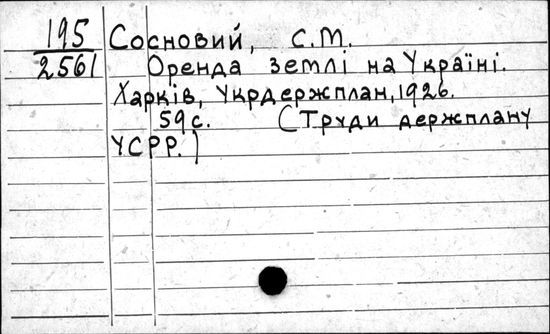 195 Сосновий, С.М.
2561 Оренда землі на Україні.
Харків, Укрдержплан, 1926.
59 с. (Труди держплану
УСРР.)